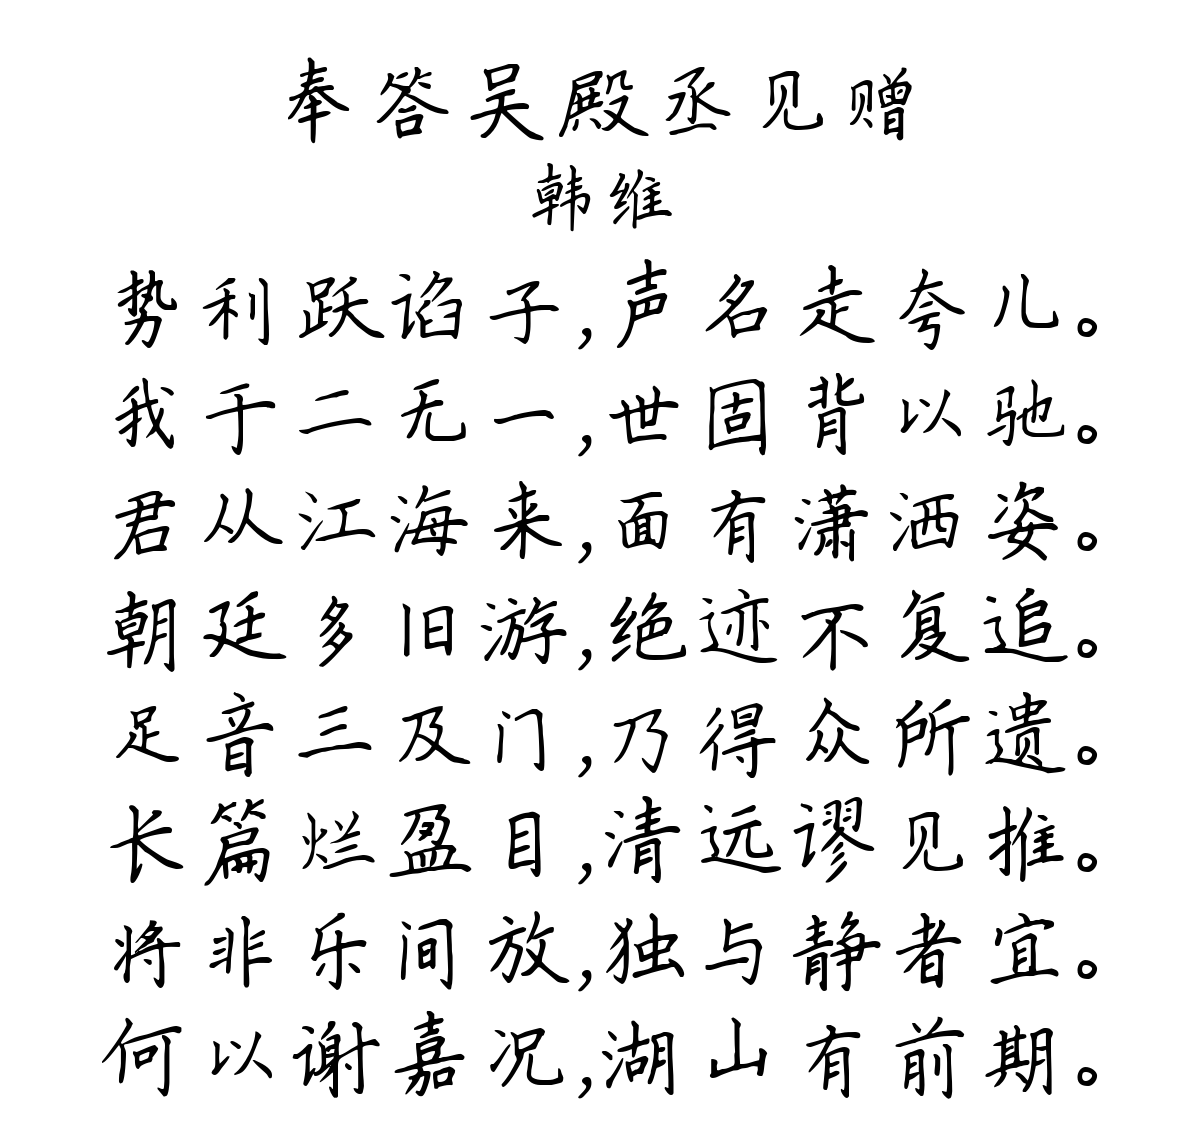 奉答吴殿丞见赠
韩维
势利跃谄子,声名走夸儿。
我于二无一,世固背以驰。
君从江海来,面有潇洒姿。
朝廷多旧游,绝迹不复追。
足音三及门,乃得众所遗。
长篇烂盈目,清远谬见推。
将非乐间放,独与静者宜。
何以谢嘉况,湖山有前期。